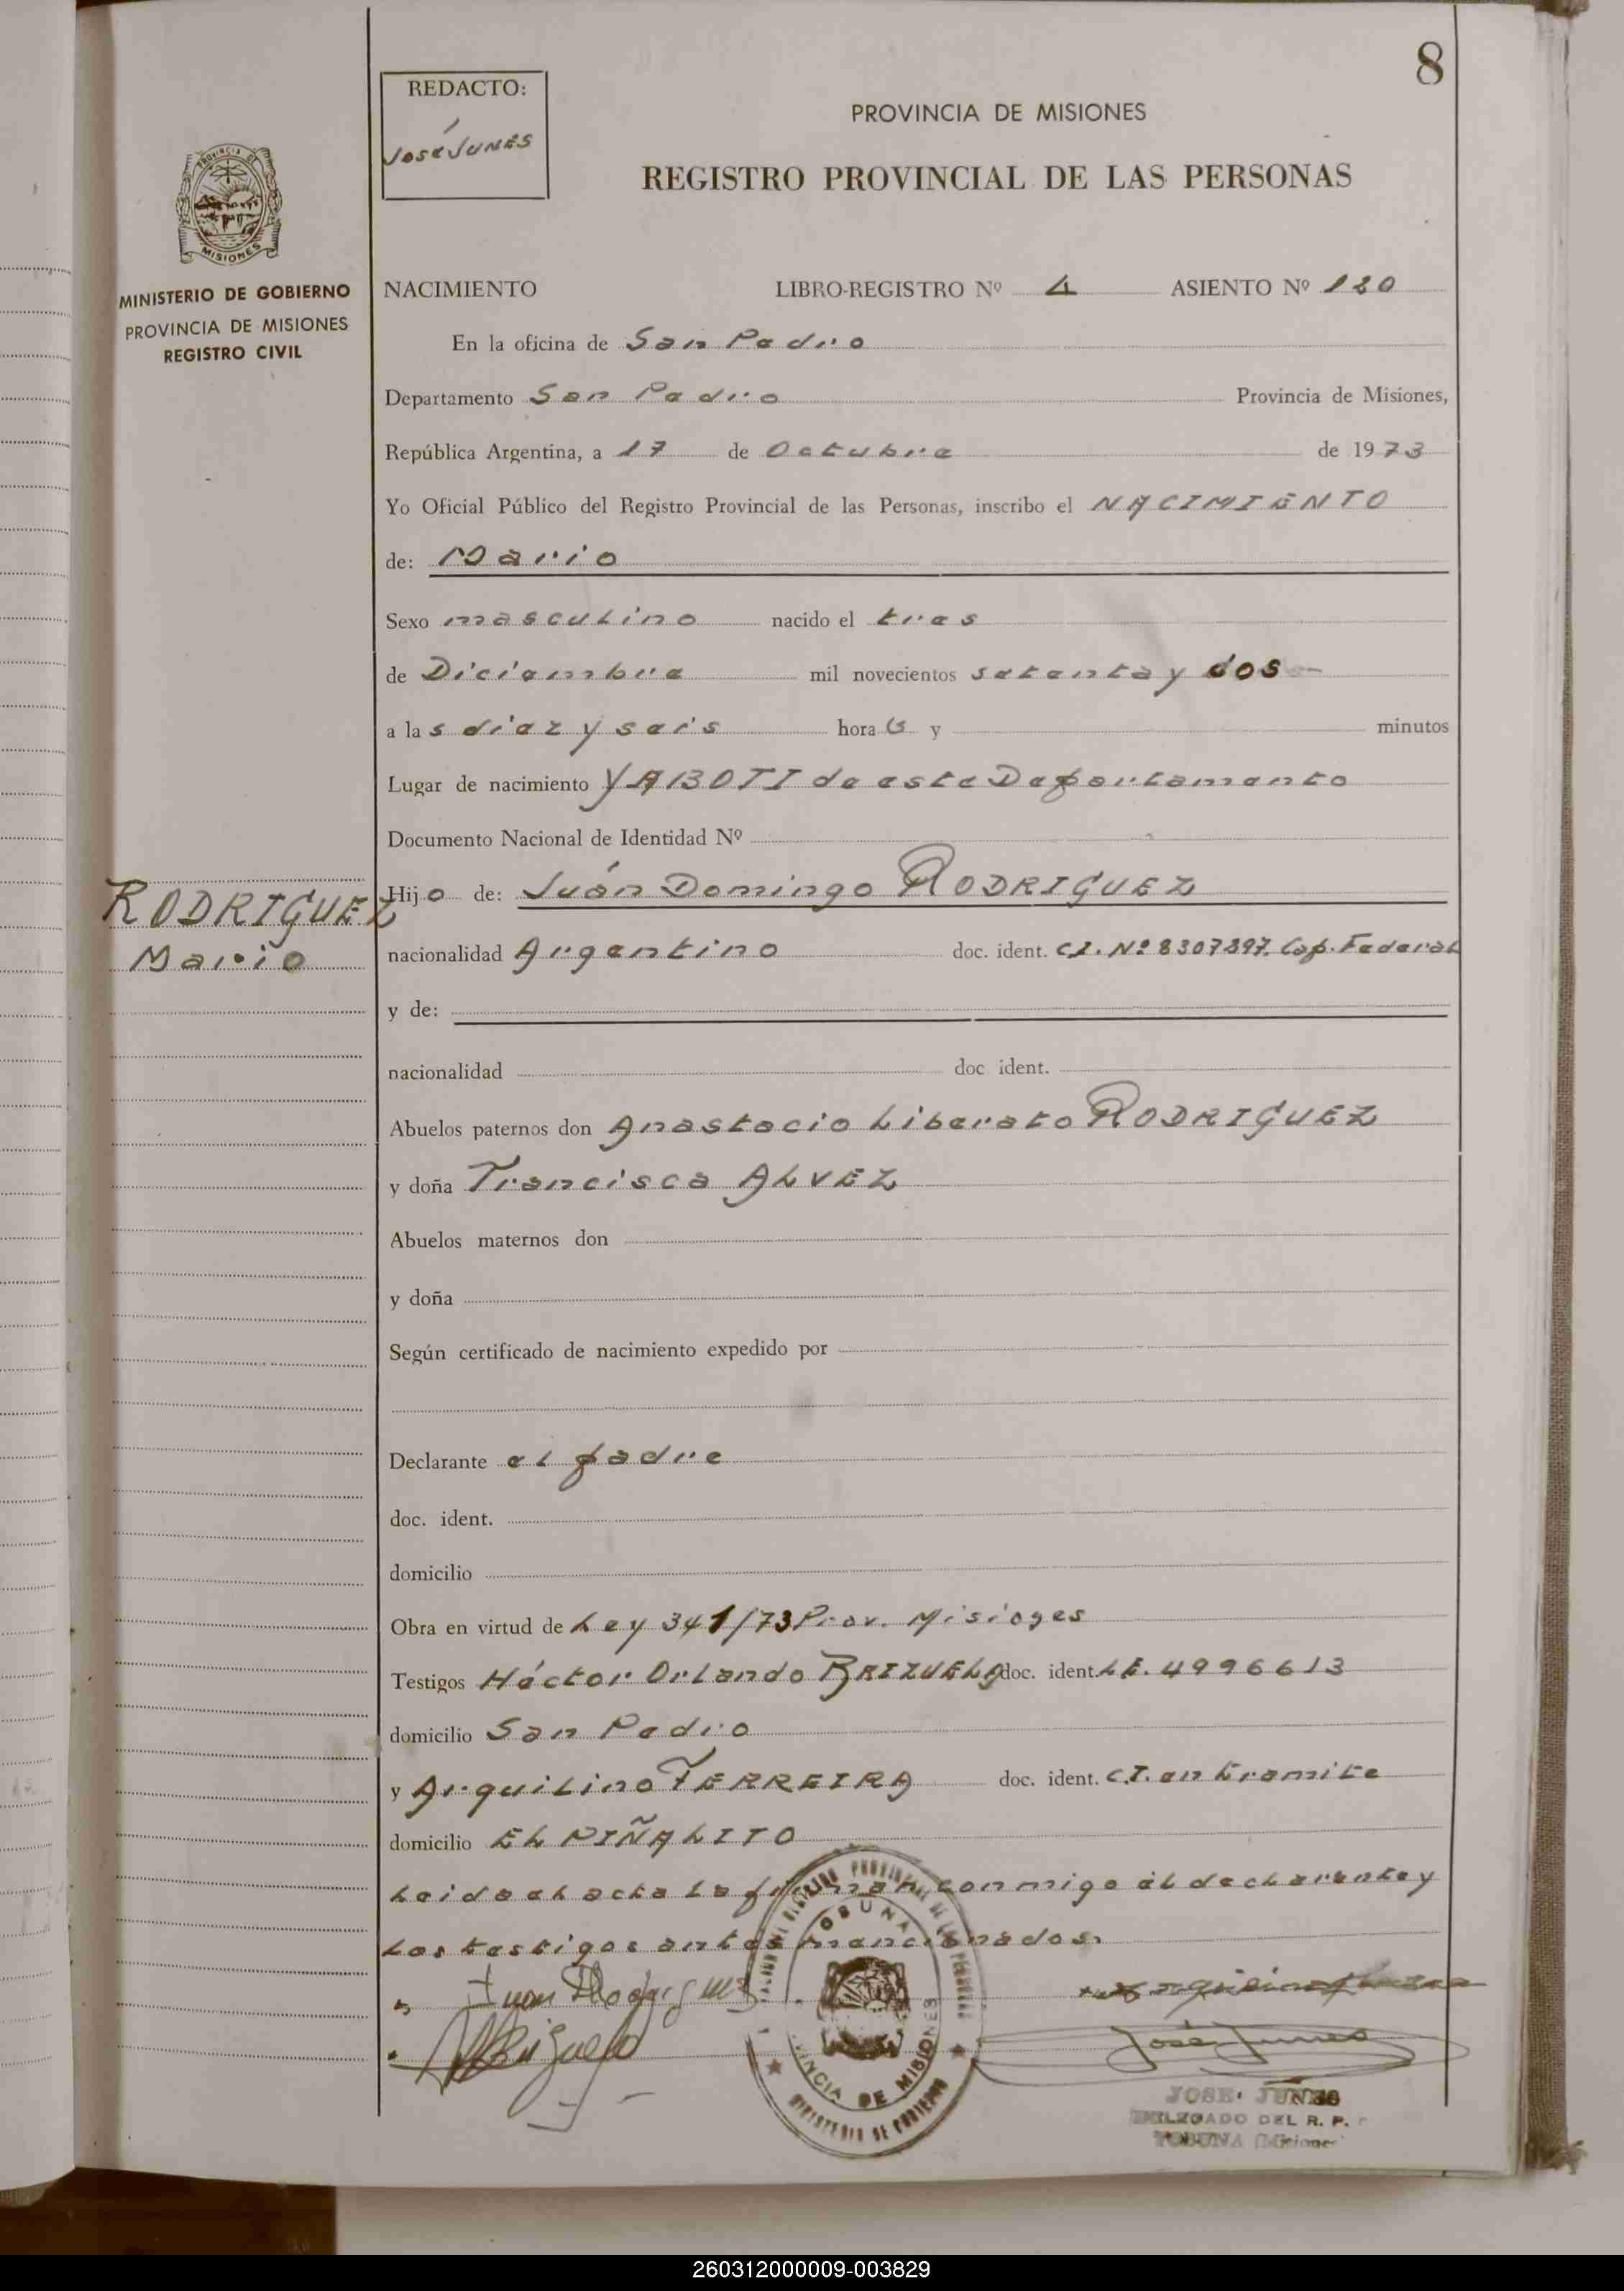 8
REDACTO:
José JUNES
PROVINCIA DE MISIONES
REGISTRO PROVINCIAL DE LAS PERSONAS
PROVINCIA DE
MISIONES
MINISTERIO DE GOBIERNO
PROVINCIA DE MISIONES
REGISTRO CIVIL
NACIMIENTO LIBRO-REGISTRO Nº 4 ASIENTO Nº 120
En la oficina de San Pedro
Departamento San Pedro Provincia de Misiones,
República Argentina, a 17 de Octubre de 1973
Yo Oficial Público del Registro Provincial de las Personas, inscribo el NACIMIENTO
de: Mario
Sexo masculino nacido el tres
de Diciembre mil novecientos setenta y dos
a las diez y seis horas y minutos
Lugar de nacimiento YABOTI de este Departamento
Documento Nacional de Identidad Nº
Hijo de: Juán Domingo RODRIGUEZ
RODRIGUEZ
Mario
nacionalidad Argentino doc. ident. C.I. Nº 8307897. Cap. Federal
y de:
nacionalidad doc ident.
Abuelos paternos don Anastacio Liberato RODRIGUEZ
y doña Francisca ALVEZ
Abuelos maternos don
y doña
Según certificado de nacimiento expedido por
Declarante el padre
doc. ident.
domicilio
Obra en virtud de Ley 341/73 Prov. Misiones
Testigos Héctor Orlando BRIZUELA doc. ident. LE. 4996613
domicilio San Pedro
y Arquilino FERREIRA doc. ident. C.I. en tramite
domicilio EL PIÑALITO
Leida el acta la firman conmigo el declarante y
los testigos antes mencionados.
Juan Rodriguez
José Junes
TOBUNA
PROVINCIA DE MISIONES
MINISTERIO DE GOBIERNO
JOSE JUNES
DELEGADO DEL R. P.
TOBUNA (Misiones)
260312000009-003829